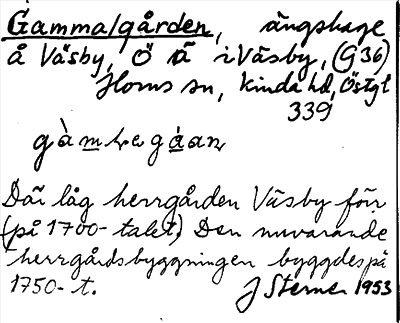 Gammalgården, ängshage
å Väsby, Ö å i Väsby, (G 36)
Horns sn, Kinda hd, Östgl
339
Där låg herrgården Väsby förr
(på 1700-talet) Den nuvarande
herrgårdsbyggningen byggdes på
1750-t. J Sterner 1953